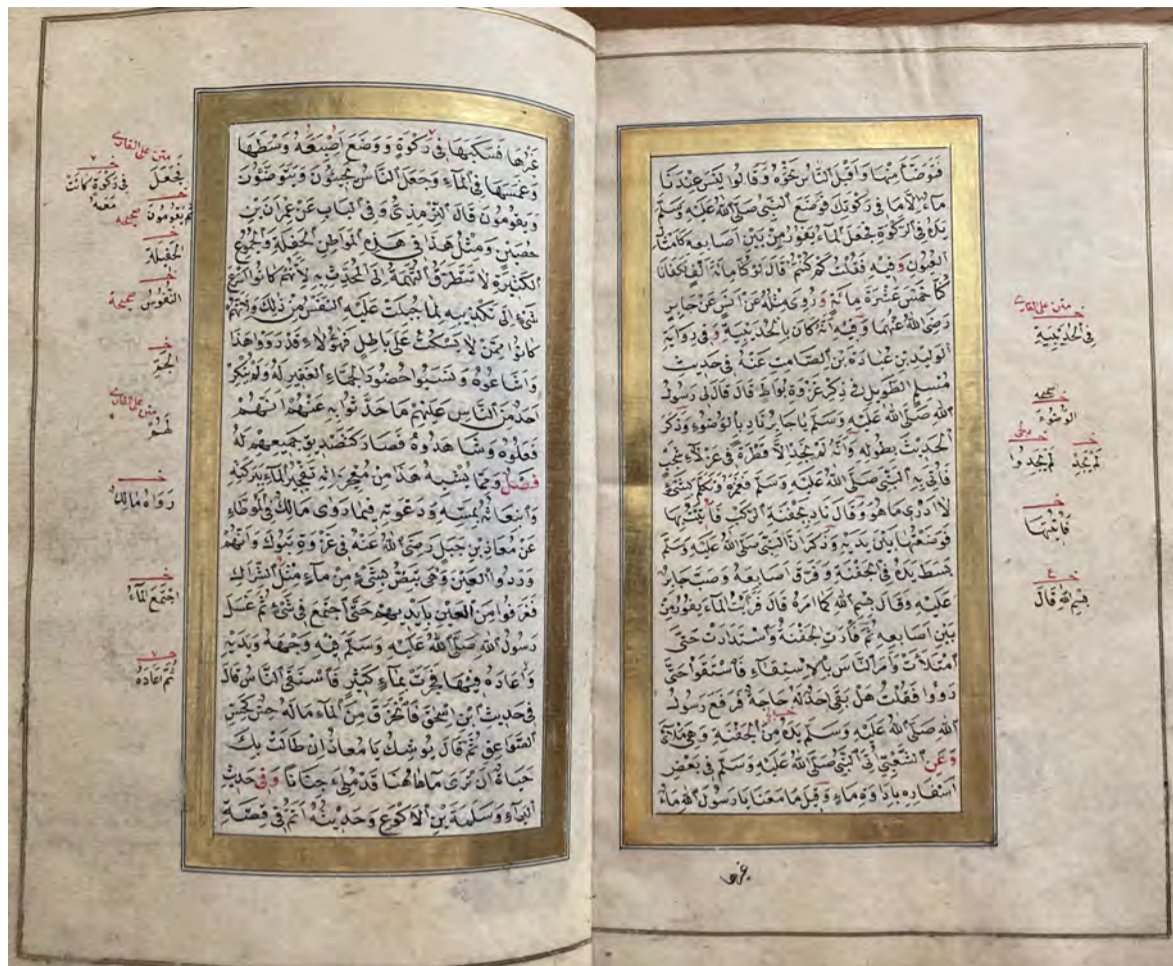 فَتَوَضَّأَ مِنْهَا وَأَقْبَلَ النَّاسُ نَحْوَهُ وَقَالُوا لَيْسَ عِنْدَنَا
مَاءٌ إِلَّا مَا فِي رَكْوَتِكَ فَوَضَعَ النَّبِيُّ صَلَّى اللهُ عَلَيْهِ وَسَلَّمَ
يَدَهُ فِي الرَّكْوَةِ فَجَعَلَ الْمَاءُ يَفُورُ مِنْ بَيْنِ أَصَابِعِهِ كَأَمْثَالِ
الْعُيُونِ وَفِيهِ فَقُلْتُ كَمْ كُنْتُمْ قَالَ لَوْ كُنَّا مِائَةَ أَلْفٍ لَكَفَانَا
كُنَّا خَمْسَ عَشْرَةَ مِائَةً وَرُوِيَ مِثْلُهُ عَنْ أَنَسٍ عَنْ جَابِرٍ
رَضِيَ اللهُ عَنْهُمَا وَفِيهِ أَنَّهُ كَانَ بِالْحُدَيْبِيَةِ وَفِي رِوَايَةِ
الْوَلِيدِ بْنِ عُبَادَةَ بْنِ الصَّامِتِ عَنْهُ فِي حَدِيثِ
مُسْلِمٍ الطَّوِيلِ فِي ذِكْرِ غَزْوَةِ بُوَاطٍ قَالَ قَالَ لِي رَسُولُ
اللهِ صَلَّى اللهُ عَلَيْهِ وَسَلَّمَ يَا جَابِرُ نَادِ بِالْوَضُوءِ وَذَكَرَ
الْحَدِيثَ بِطُولِهِ وَأَنَّهُ لَمْ يَجِدْ إِلَّا قَطْرَةً فِي عَزْلَاءِ شَجْبٍ
فَأُتِيَ بِهِ النَّبِيُّ صَلَّى اللهُ عَلَيْهِ وَسَلَّمَ فَغَمَزَهُ وَتَكَلَّمَ بِشَيْءٍ
لَا أَدْرِي مَا هُوَ وَقَالَ نَادِ بِجَفْنَةِ الرَّكْبِ فَأَتَيْتُ بِهَا
فَوَضَعْتُهَا بَيْنَ يَدَيْهِ وَذَكَرَ أَنَّ النَّبِيَّ صَلَّى اللهُ عَلَيْهِ وَسَلَّمَ
بَسَطَ يَدَهُ فِي الْجَفْنَةِ وَفَرَّقَ أَصَابِعَهُ وَصَبَّ جَابِرٌ
عَلَيْهِ وَقَالَ بِسْمِ اللهِ كَمَا أَمَرَهُ قَالَ فَرَأَيْتُ الْمَاءَ يَفُورُ مِنْ
بَيْنِ أَصَابِعِهِ ثُمَّ فَارَتِ الْجَفْنَةُ وَاسْتَدَارَتْ حَتَّى
امْتَلَأَتْ وَأَمَرَ النَّاسَ بِالِاسْتِقَاءِ فَاسْتَقَوْا حَتَّى
رَوُوا فَقُلْتُ هَلْ بَقِيَ أَحَدٌ لَهُ حَاجَةٌ فَرَفَعَ رَسُولُ
اللهِ صَلَّى اللهُ عَلَيْهِ وَسَلَّمَ يَدَهُ مِنَ الْجَفْنَةِ وَهِيَ مَلْأَى
وَعَنِ الشَّعْبِيِّ أُتِيَ النَّبِيُّ صَلَّى اللهُ عَلَيْهِ وَسَلَّمَ فِي بَعْضِ
أَسْفَارِهِ بِإِدَاوَةِ مَاءٍ وَقِيلَ مَا مَعَنَا يَا رَسُولَ اللهِ مَاءٌ
متن على القارى
فِي الْحُدَيْبِيَةِ
صحيحه
الْوَضُوءَ
لَمْ نَجِدْ
لَمْ يَجِدُوا
فَأَتَيْتُهَا
بِسْمِ اللهِ قَالَ
غيرها
غَيْرُهَا فَسَكَبَهَا فِي رَكْوَةٍ وَوَضَعَ إِصْبَعَهُ وَسْطَهَا
وَغَمَسَهَا فِي الْمَاءِ وَجَعَلَ النَّاسُ يَجِيئُونَ وَيَتَوَضَّئُونَ
وَيَقُومُونَ قَالَ التِّرْمِذِيُّ وَفِي الْبَابِ عَنْ عِمْرَانَ بْنِ
حُصَيْنٍ وَمِثْلُ هَذَا فِي هَذِهِ الْمَوَاطِنِ الْحَفِلَةِ وَالْجُمُوعِ
الْكَثِيرَةِ لَا تَتَطَرَّقُ التُّهْمَةُ إِلَى الْمُحَدِّثِ بِهِ لِأَنَّهُمْ كَانُوا أَسْرَعَ
شَيْءٍ إِلَى تَكْذِيبِهِ لِمَا جُبِلَتْ عَلَيْهِ النَّفْسُ مِنْ ذَلِكَ وَلِأَنَّهُمْ
كَانُوا مِمَّنْ لَا يَسْكُتُ عَلَى بَاطِلٍ فَهَؤُلَاءِ قَدْ رَوَوْا هَذَا
وَأَشَاعُوهُ وَنَسَبُوا حُضُورَ الْجَمَّاءِ الْغَفِيرِ لَهُ وَلَمْ يُنْكِرْ
أَحَدٌ مِنَ النَّاسِ عَلَيْهِمْ مَا حَدَّثُوا بِهِ عَنْهُمْ أَنَّهُمْ
فَعَلُوهُ وَشَاهَدُوهُ فَصَارَ كَتَصْدِيقِ جَمِيعِهِمْ لَهُ
فَصْلٌ وَمِمَّا يُشْبِهُ هَذَا مِنْ مُعْجِزَاتِهِ تَفْجِيرُ الْمَاءِ بِبَرَكَتِهِ
وَانْبِعَاثُهُ بِمَسِّهِ وَدَعْوَتِهِ فِيمَا رَوَى مَالِكٌ فِي الْمُوَطَّأِ
عَنْ مُعَاذِ بْنِ جَبَلٍ رَضِيَ اللهُ عَنْهُ فِي غَزْوَةِ تَبُوكَ وَأَنَّهُمْ
وَرَدُوا الْعَيْنَ وَهِيَ تَبِضُّ بِشَيْءٍ مِنْ مَاءٍ مِثْلَ الشِّرَاكِ
فَغَرَفُوا مِنَ الْعَيْنِ بِأَيْدِيهِمْ حَتَّى اجْتَمَعَ فِي شَيْءٍ ثُمَّ غَسَلَ
رَسُولُ اللهِ صَلَّى اللهُ عَلَيْهِ وَسَلَّمَ فِيهِ وَجْهَهُ وَيَدَيْهِ
وَأَعَادَهُ فِيهَا فَجَرَتْ بِمَاءٍ كَثِيرٍ فَاسْتَقَى النَّاسُ قَالَ
فِي حَدِيثِ ابْنِ إِسْحَقَ فَانْخَرَقَ مِنَ الْمَاءِ مَا لَهُ حِسٌّ كَحِسِّ
الصَّوَاعِقِ ثُمَّ قَالَ يُوشِكُ يَا مُعَاذُ إِنْ طَالَتْ بِكَ
حَيَاةٌ أَنْ تَرَى مَا هَاهُنَا قَدْ مُلِئَ جِنَانًا وَفِي حَدِيثِ
الْبَرَاءِ وَسَلَمَةَ بْنِ الْأَكْوَعِ وَحَدِيثُهُ أَتَمُّ فِي قِصَّةِ
متن على القارى
فَجَعَلَ
فِي رَكْوَةٍ كَانَتْ مَعَهُ
ثُمَّ يَقُومُونَ صحيحه
الْحَفِيلَةِ
النُّفُوسُ صحيحة
الْجَمِّ
متن على القارى
لَهُمْ
رَوَاهُ مَالِكٌ
اجْتَمَعَ الْمَاءُ
ثُمَّ أَعَادَهُ